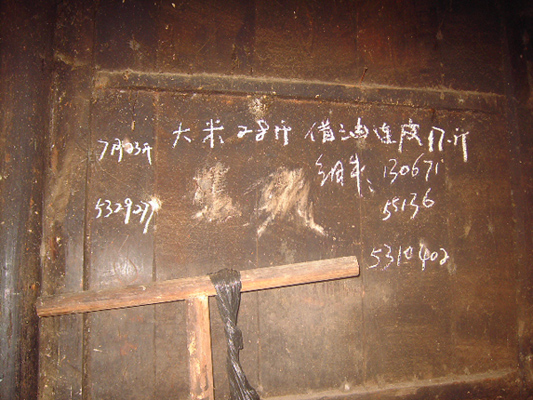 大米28斤 借油连度17斤
7月23斤
细米 130671
5329277
55136
5310402